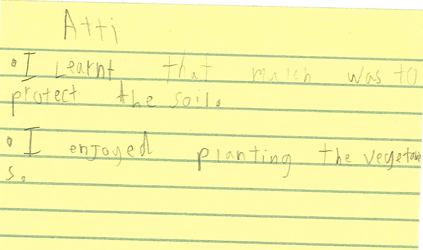 Atti
• I Learnt that mulch was to
protect the soil.
• I enjoyed planting the vegetable
s.